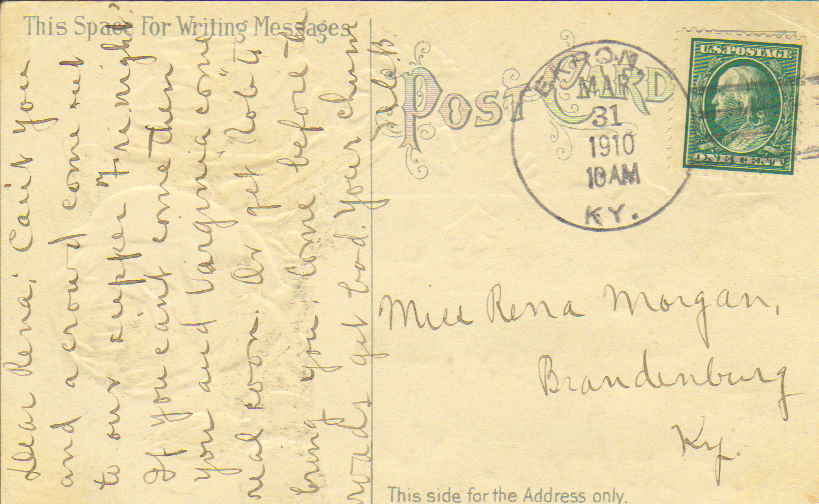 This Space For Writing Messages
Dear Rena; Can't you
and a crowd come out
to our supper Fri night?
If you can't come then
you and Varginia come
real soon. Or get Rob to
bring you. Come before the
roads get bad. Your chum
POST CARD
EKRON,
MAR
31
1910
10 AM
KY.
U.S. POSTAGE
ONE CENT
Miss Rena Morgan,
Brandenburg
Ky.
This side for the Address only.